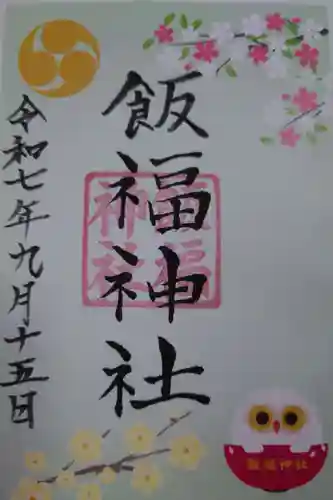 飯福神社
令和七年九月十五日
飯福神社
飯福神社